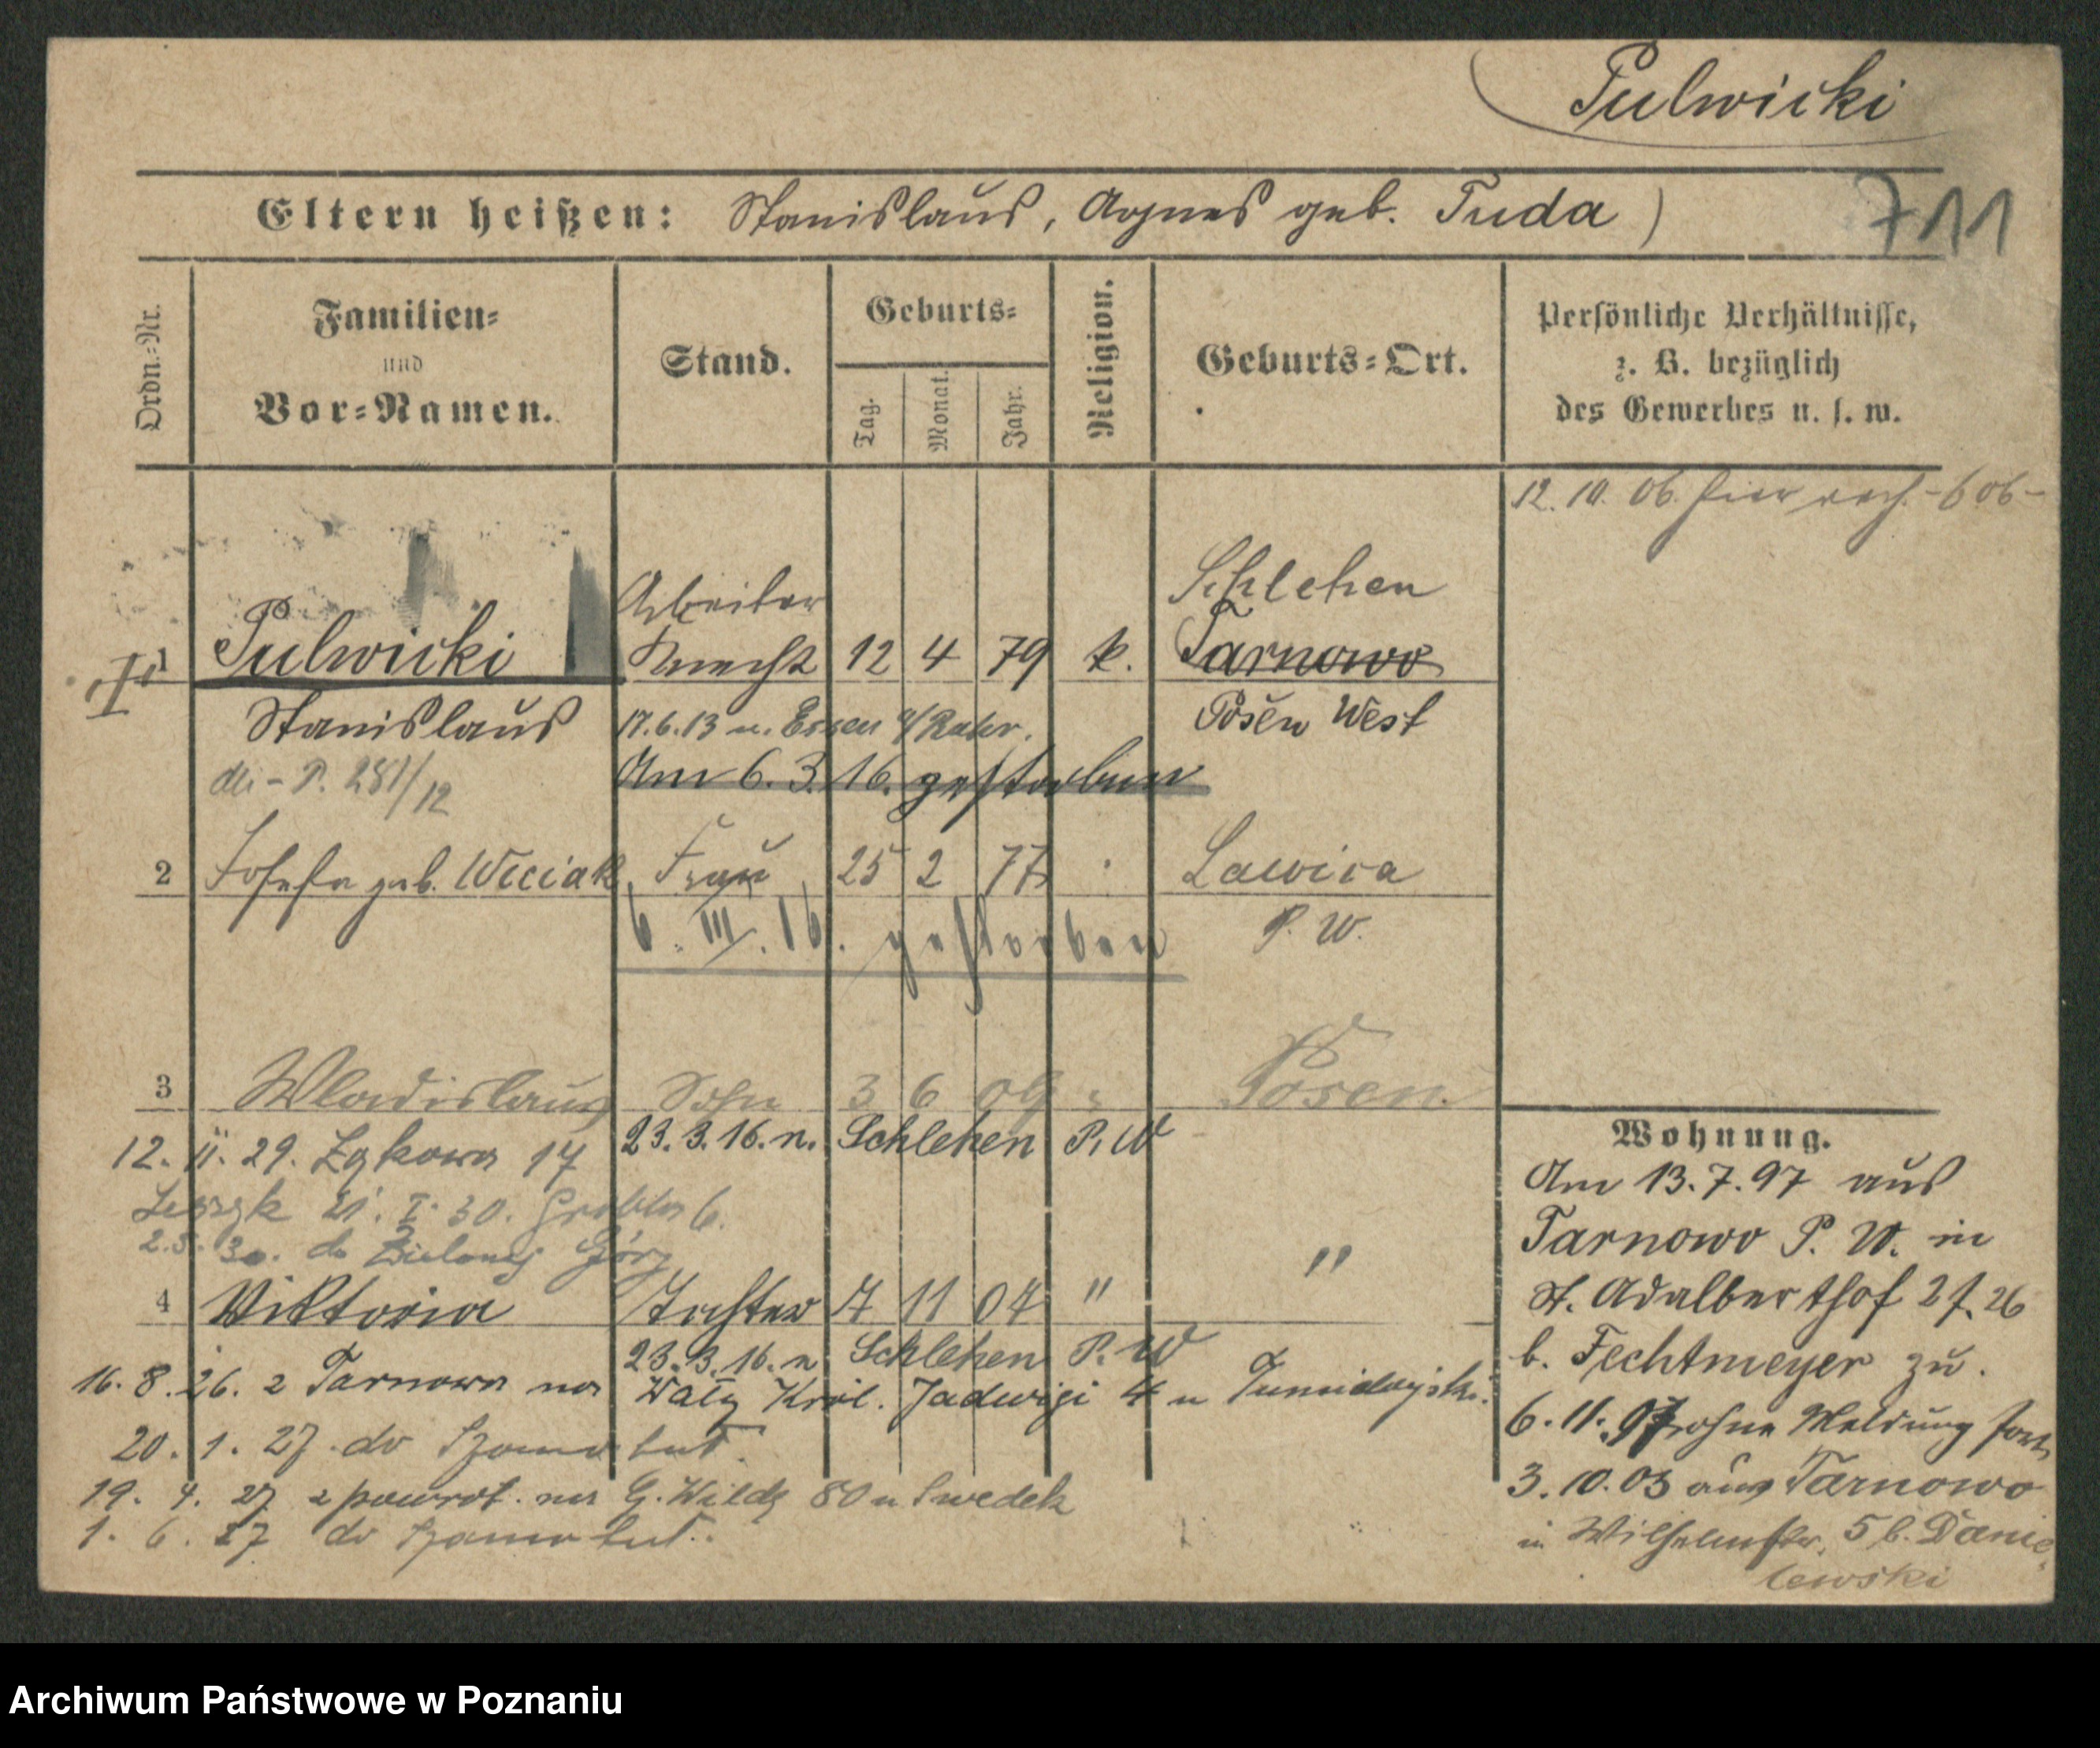 Pulwicki
Eltern heißen: Stanislaus, Agnes geb. Tuda)
711
Ordn.-Nr.
Familien-
und
Vor-Namen.
Stand.
Geburts-
Tag.
Monat.
Jahr.
Religion.
Geburts-Ort.
Persönliche Verhältnisse,
z. B. bezüglich
des Gewerbes u. s. w.
12. 10. 06. hier
Arbeiter
Schlehen
1 Pulwicki Knecht 12 4 79 k. Tarnowo
Stanislaus 17.6.13 n. Essen a/Ruhr. Posen West
P. 281/12 Am 6. 3. 16. gestorben
2 Josefa geb. Weciak Frau 25 2 77 Lawica
6. III. 16. gestorben P. W.
3 Wladislaus Sohn 3 6 09 Posen.
23. 3. 16. n. Schlehen P. W
12. 11. 29. Łąkowa 17
21. I. 30. Grobla 6.
30. do Zielonej Góry
4 Viktoria Tochter 17 11 07 " "
23. 3. 16. n Schlehen P. W
16. 8. 26. z Tarnowa na Wały Król. Jadwigi 4 u
20. 1. 27. do Szamotuł.
19. 4. 27 z powrot. na G. Wildę 80 u Swedek
1. 6. 27 do Szamotuł.
Wohnung.
Am 13. 7. 97 aus
Tarnowo P. W. in
St. Adalberthof 27.26
b. Fechtmeyer zu.
6. 11. 97 ohne Meldung fort
3. 10. 03 aus Tarnowo
in Wilhelmstr. 5 b. Danie-
lewski
Archiwum Państwowe w Poznaniu